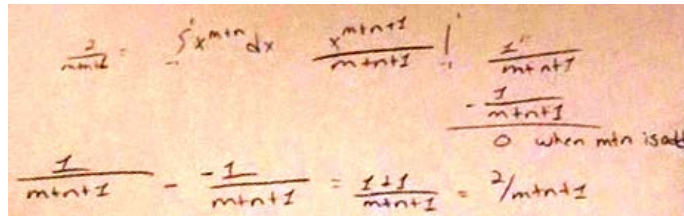 2/m+n+1 = ∫₋₁¹ x^m+n dx x^m+n+1/m+n+1 |₋₁¹ 1/m+n+1
- 1/m+n+1
0 when m+n is odd
1/m+n+1 - -1/m+n+1 = 1+1/m+n+1 = 2/m+n+1